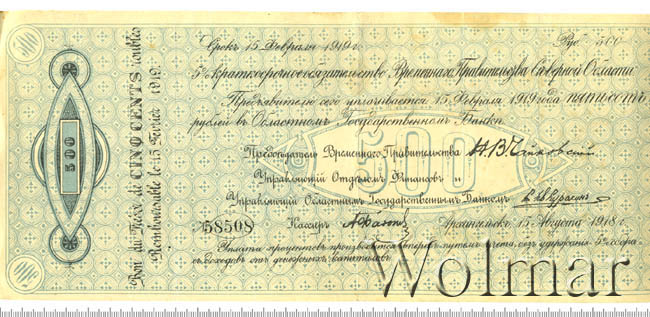 Срокъ 15 Февраля 1919 г.
Руб. 500
5% краткосрочное обязательство Временнаго Правительства Сѣверной Области
Предъявителю сего уплачивается 15 Февраля 1919 года пятьсотъ
рублей въ Областномъ Государственномъ Банкѣ.
500
Предсѣдатель Временнаго Правительства Н. В. Чайковский
Управляющій Отдѣломъ Финансовъ и
Управляющій Областнымъ Государственнымъ Банкомъ
№ 58508 Кассиръ Архангельскъ 15 Августа 1918 г.
Уплата процентовъ производится впередъ путемъ учета, безъ удержанія 5% сбора
съ доходовъ отъ денежныхъ капиталовъ.
Bon du Trésor de CINQ CENTS roubles
Remboursable le 15 Février 1919.
500
Wolmar